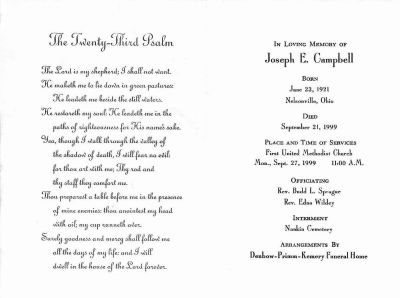 The Twenty-Third Psalm
The Lord is my shepherd; I shall not want.
He maketh me to lie down in green pastures:
He leadeth me beside the still waters.
He restoreth my soul: He leadeth me in the
paths of righteousness for His name's sake.
Yea, though I walk through the valley of
the shadow of death, I will fear no evil:
for thou art with me; Thy rod and
thy staff they comfort me.
Thou preparest a table before me in the presence
of mine enemies: thou anointest my head
with oil; my cup runneth over.
Surely goodness and mercy shall follow me
all the days of my life: and I will
dwell in the house of the Lord forever.
In Loving Memory of
Joseph E. Campbell
Born
June 23, 1921
Nelsonville, Ohio
Died
September 21, 1999
Place and Time of Services
First United Methodist Church
Mon., Sept. 27, 1999 11:00 A.M.
Officiating
Rev. Budd L. Sprague
Rev. Edna Wildey
Interment
Naskin Cemetery
Arrangements By
Denbow-Primm-Kemery Funeral Home